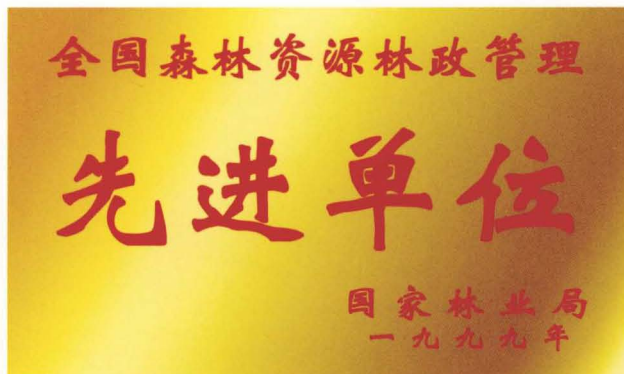 全国森林资源林政管理
先进单位
国家林业局
一九九九年